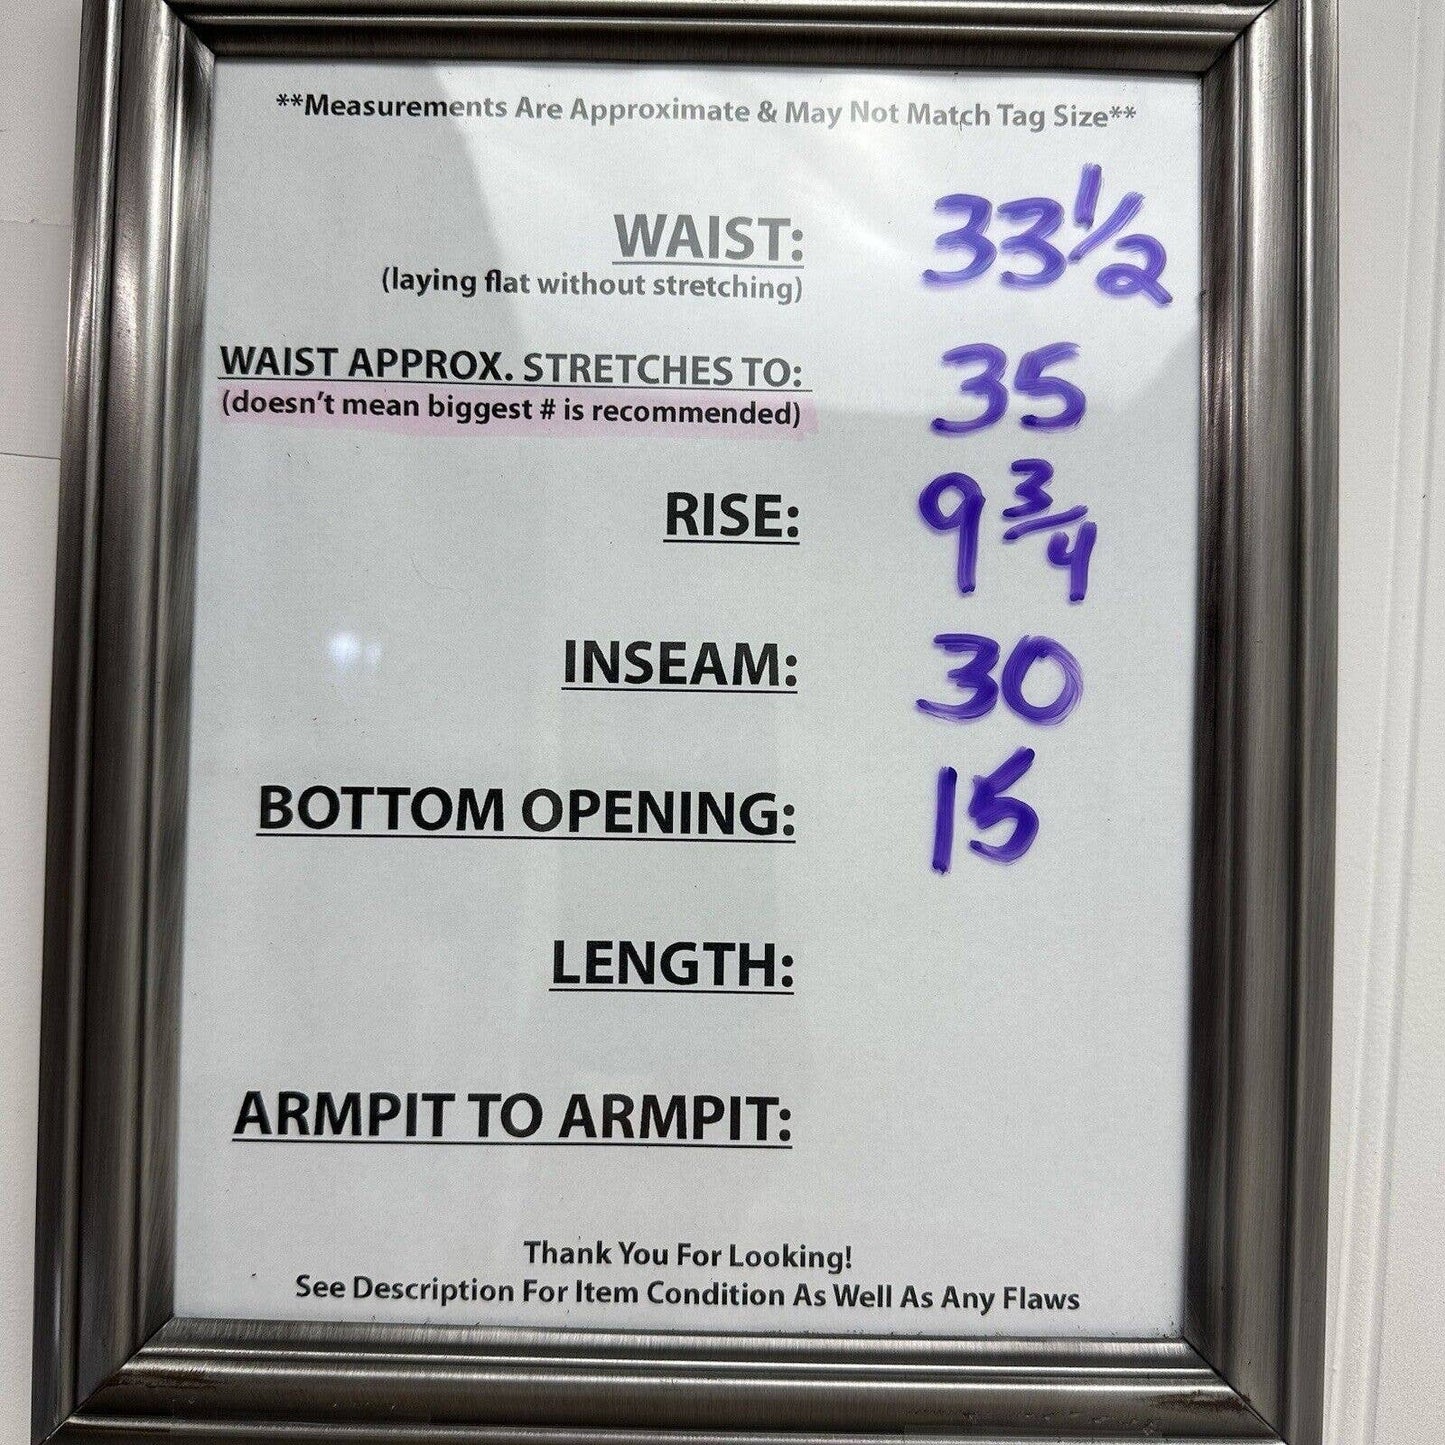 **Measurements Are Approximate & May Not Match Tag Size**
WAIST: 33 1/2
(laying flat without stretching)
WAIST APPROX. STRETCHES TO: 35
(doesn't mean biggest # is recommended)
RISE: 9 3/4
INSEAM: 30
BOTTOM OPENING: 15
LENGTH:
ARMPIT TO ARMPIT:
Thank You For Looking!
See Description For Item Condition As Well As Any Flaws